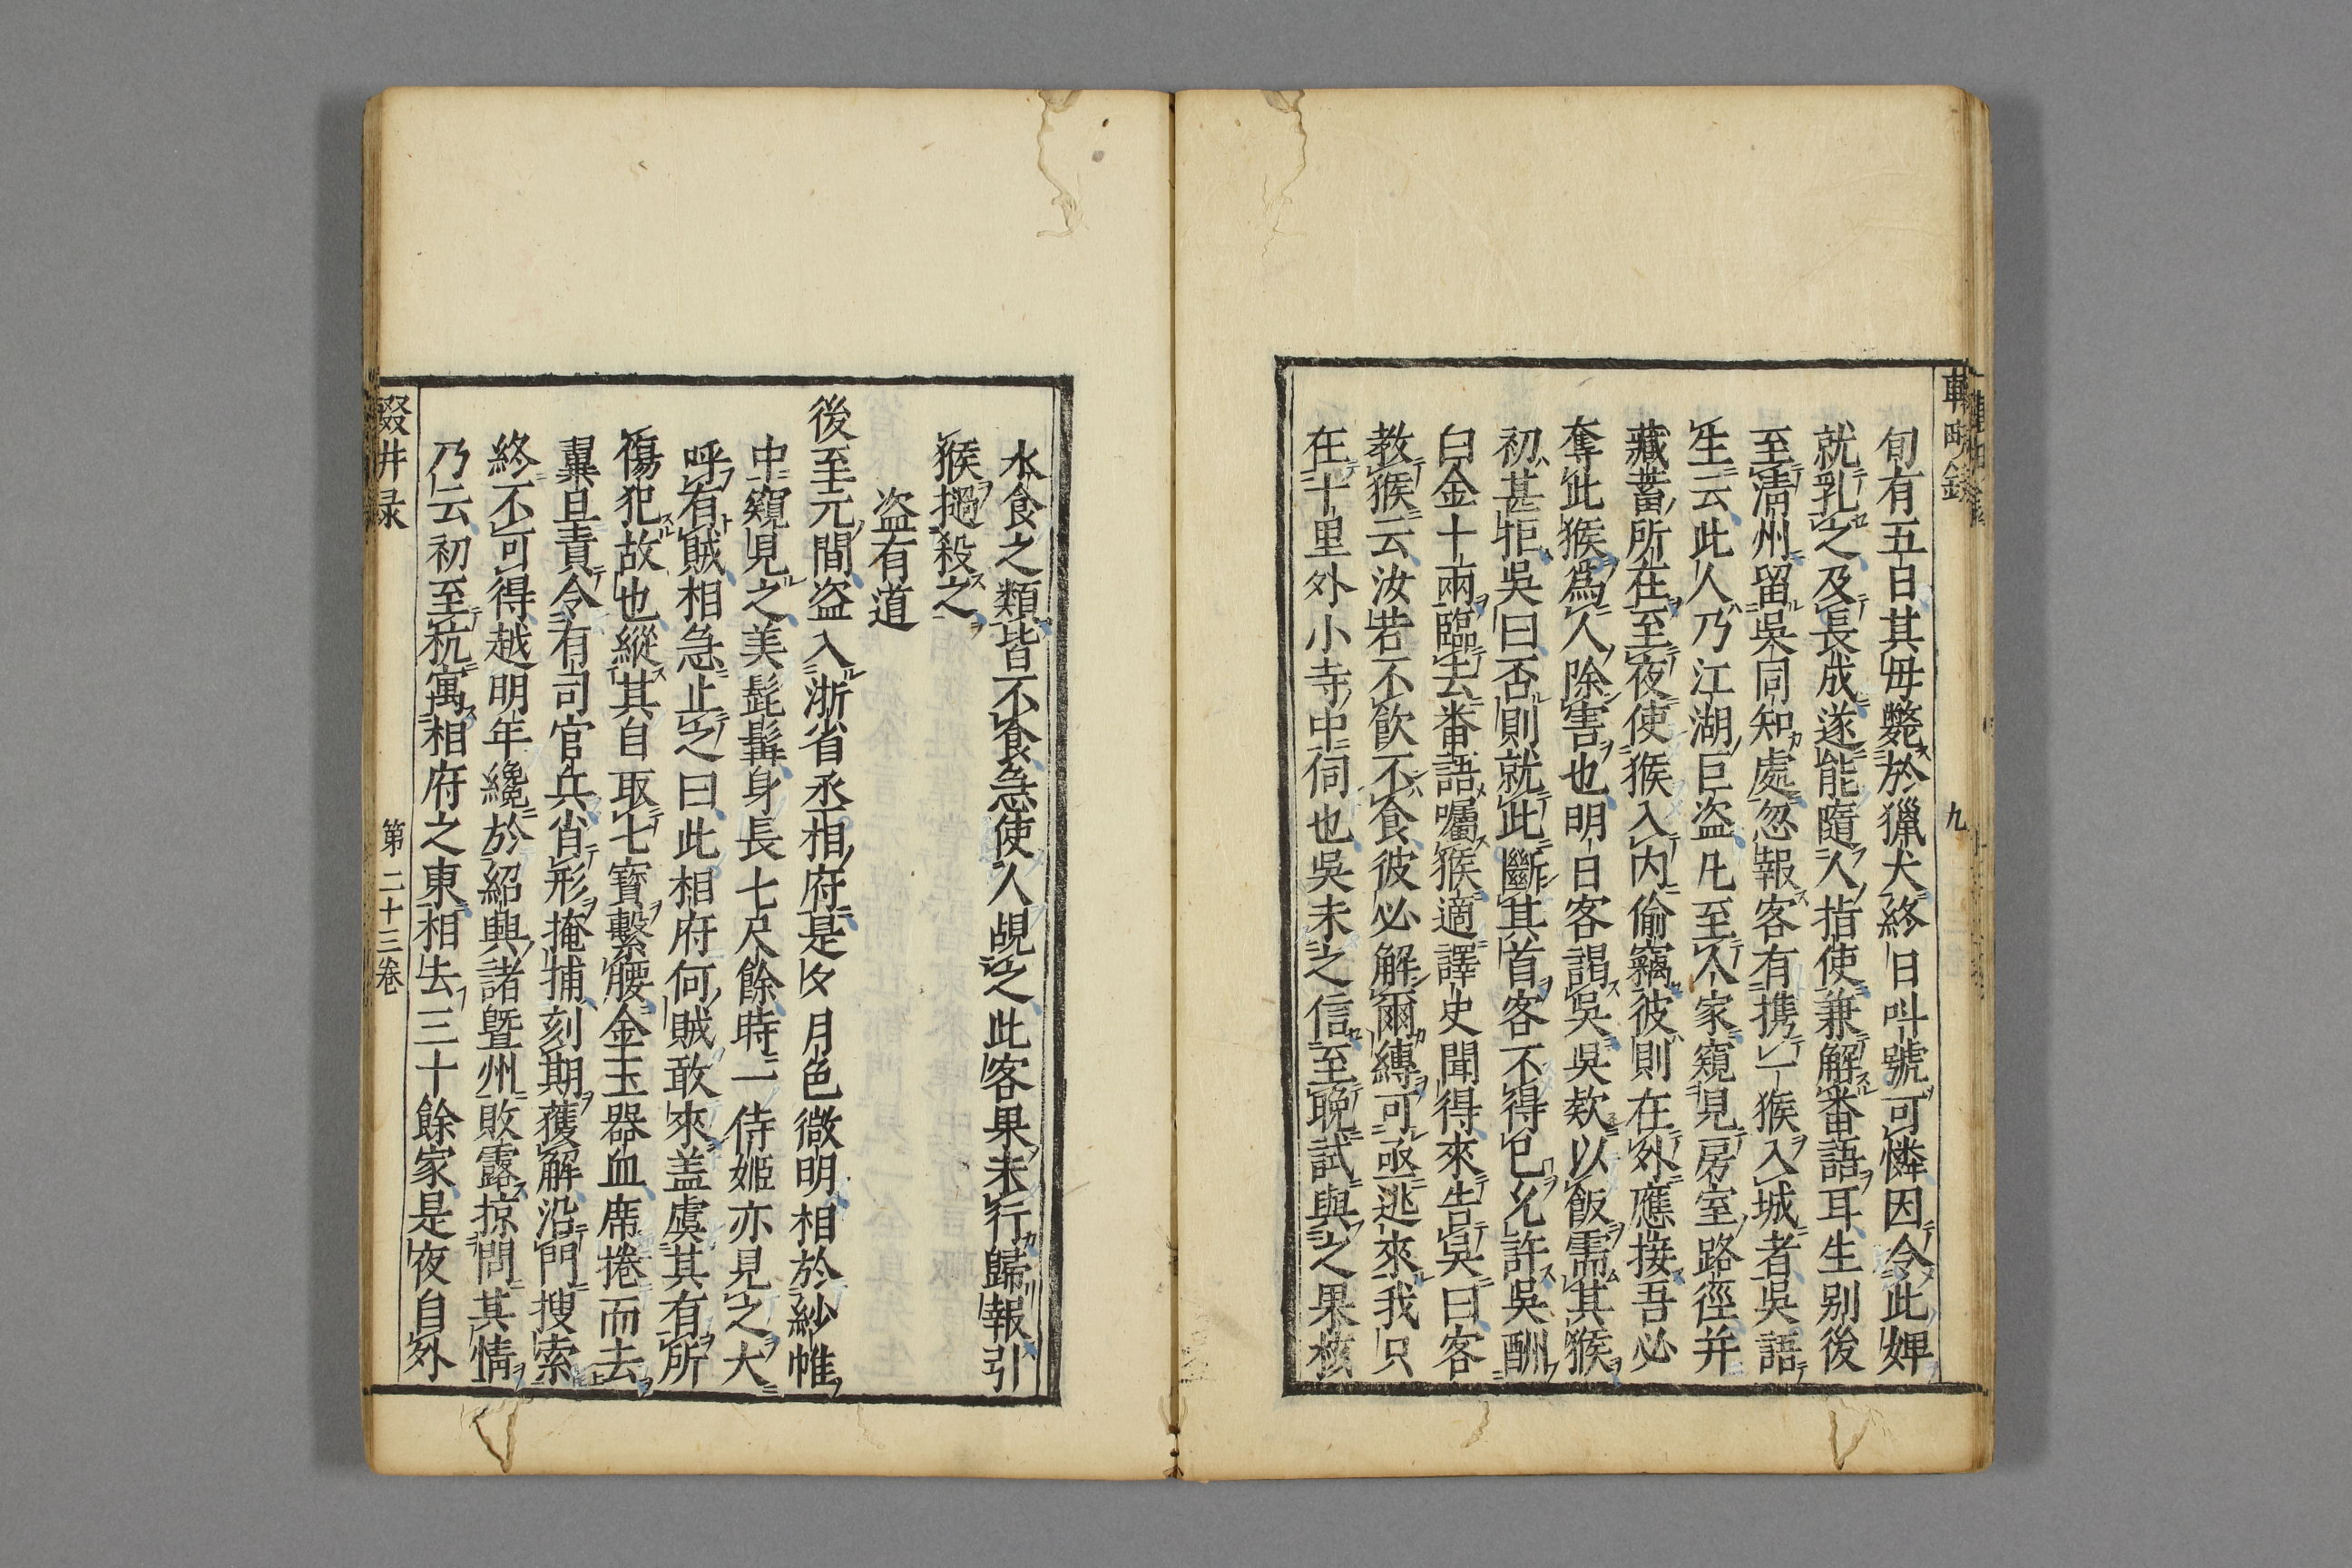 輟畊錄
九
旬有五日其母斃於獵犬終日呌號可憐因令此婢
就乳之及長成遂能隨人指使兼解番語耳生别後
至淸州留吳同知處忽報客有携一猴入城者吳語
生云此人乃江湖巨盗凡至人家窺見房室路徑并
藏蓄所在至夜使猴入内偷竊彼則在外應接吾必
奪此猴爲人除害也明日客謁吳吳欵以飯需其猴
初甚拒吳曰否則就此斷其首客不得已允許吳酬
白金十兩臨去番語囑猴適譯史聞得來告吳曰客
教猴云汝若不飲不食彼必解爾縛可亟逃來我只
在十里外小寺中伺也吳未之信至晚試與之果核
水食之類皆不食急使人覘之此客果未行歸報引
猴撾殺之
盗有道
後至元間盗入浙省丞相府是夕月色微明相於紗帷
中窺見之美髭髯身長七尺餘時一侍姬亦見之大
呼有賊相急止之曰此相府何賊敢來盖虞其有所
傷犯故也縱其自取七寶繫腰金玉器皿席捲而去
翼旦責令有司官兵肖形掩捕刻期獲解沿門搜索
終不可得越明年纔於紹興諸曁州敗露掠問其情
乃云初至杭寓相府之東相去三十餘家是夜自外
第二十三巻